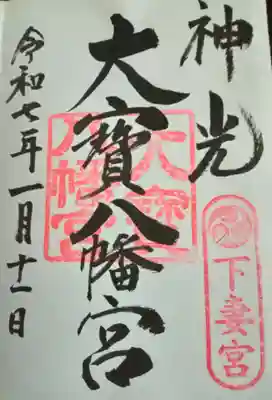 神光
大寶八幡宮
令和七年一月十一日
大寶八幡宮
下妻宮